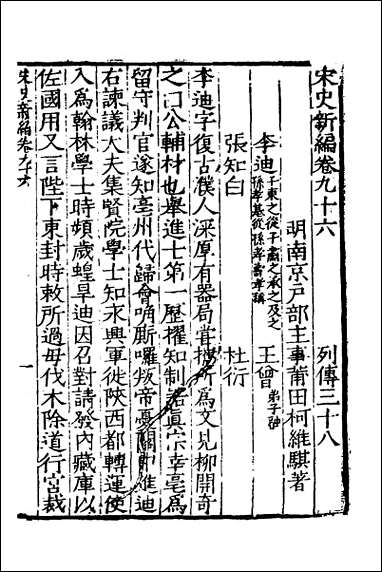 宋史新編卷九十六 列傳三十八
明南京戶部主事莆田柯維騏著
李迪 子東之從子肅之承之及之 孫孝基從孫孝壽孝稱 王曾 弟子融
張知白 杜衍
李迪字復古濮人深厚有器局嘗攜所為文見柳開奇
之曰公輔材也舉進士第一歷擢知制誥真宗幸亳為
留守判官遂知亳州代歸會唃厮囉叛帝憂關中進迪
右諫議大夫集賢院學士知永興軍徙陝西都轉運使
入為翰林學士時頻歲蝗旱迪因召對請發內藏庫以
佐國用又言陛下東封時敕所過毋伐木除道行宮裁
宋史新編卷九十六
一